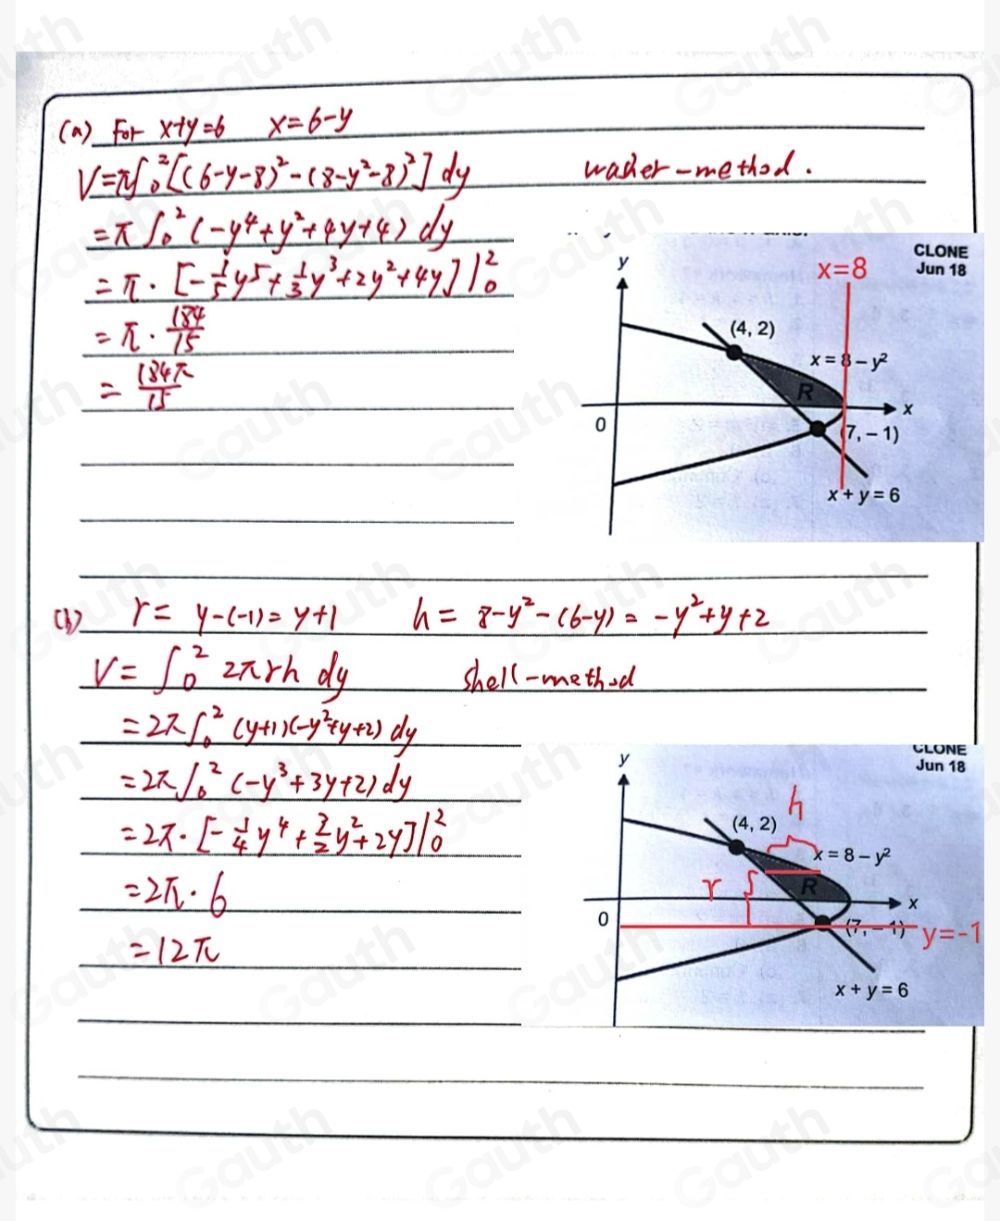 (a) For x+y=6 x=6-y
V=π∫₀²[(6-y-8)²-(8-y²-8)²]dy washer-method.
=π∫₀²(-y⁴+y²+4y+4) dy
=π·[-1/5y⁵+1/3y³+2y²+4y]|₀²
=π·184/15
=184π/15
CLONE
Jun 18
x=8
y
(4, 2)
x = 8 – y²
R
x
0
(7, – 1)
x + y = 6
(b) r= y-(-1)=y+1 h= 8-y²-(6-y)=-y²+y+2
V=∫₀² 2πrh dy shell-method
=2π∫₀² (y+1)(-y²+y+2) dy
=2π∫₀² (-y³+3y+2)dy
=2π·[-1/4y⁴+3/2y²+2y]|₀²
=2π·6
=12π
CLONE
Jun 18
y
h
(4, 2)
x = 8 – y²
r
R
x
0
(7, – 1)
y=-1
x + y = 6
Gauth